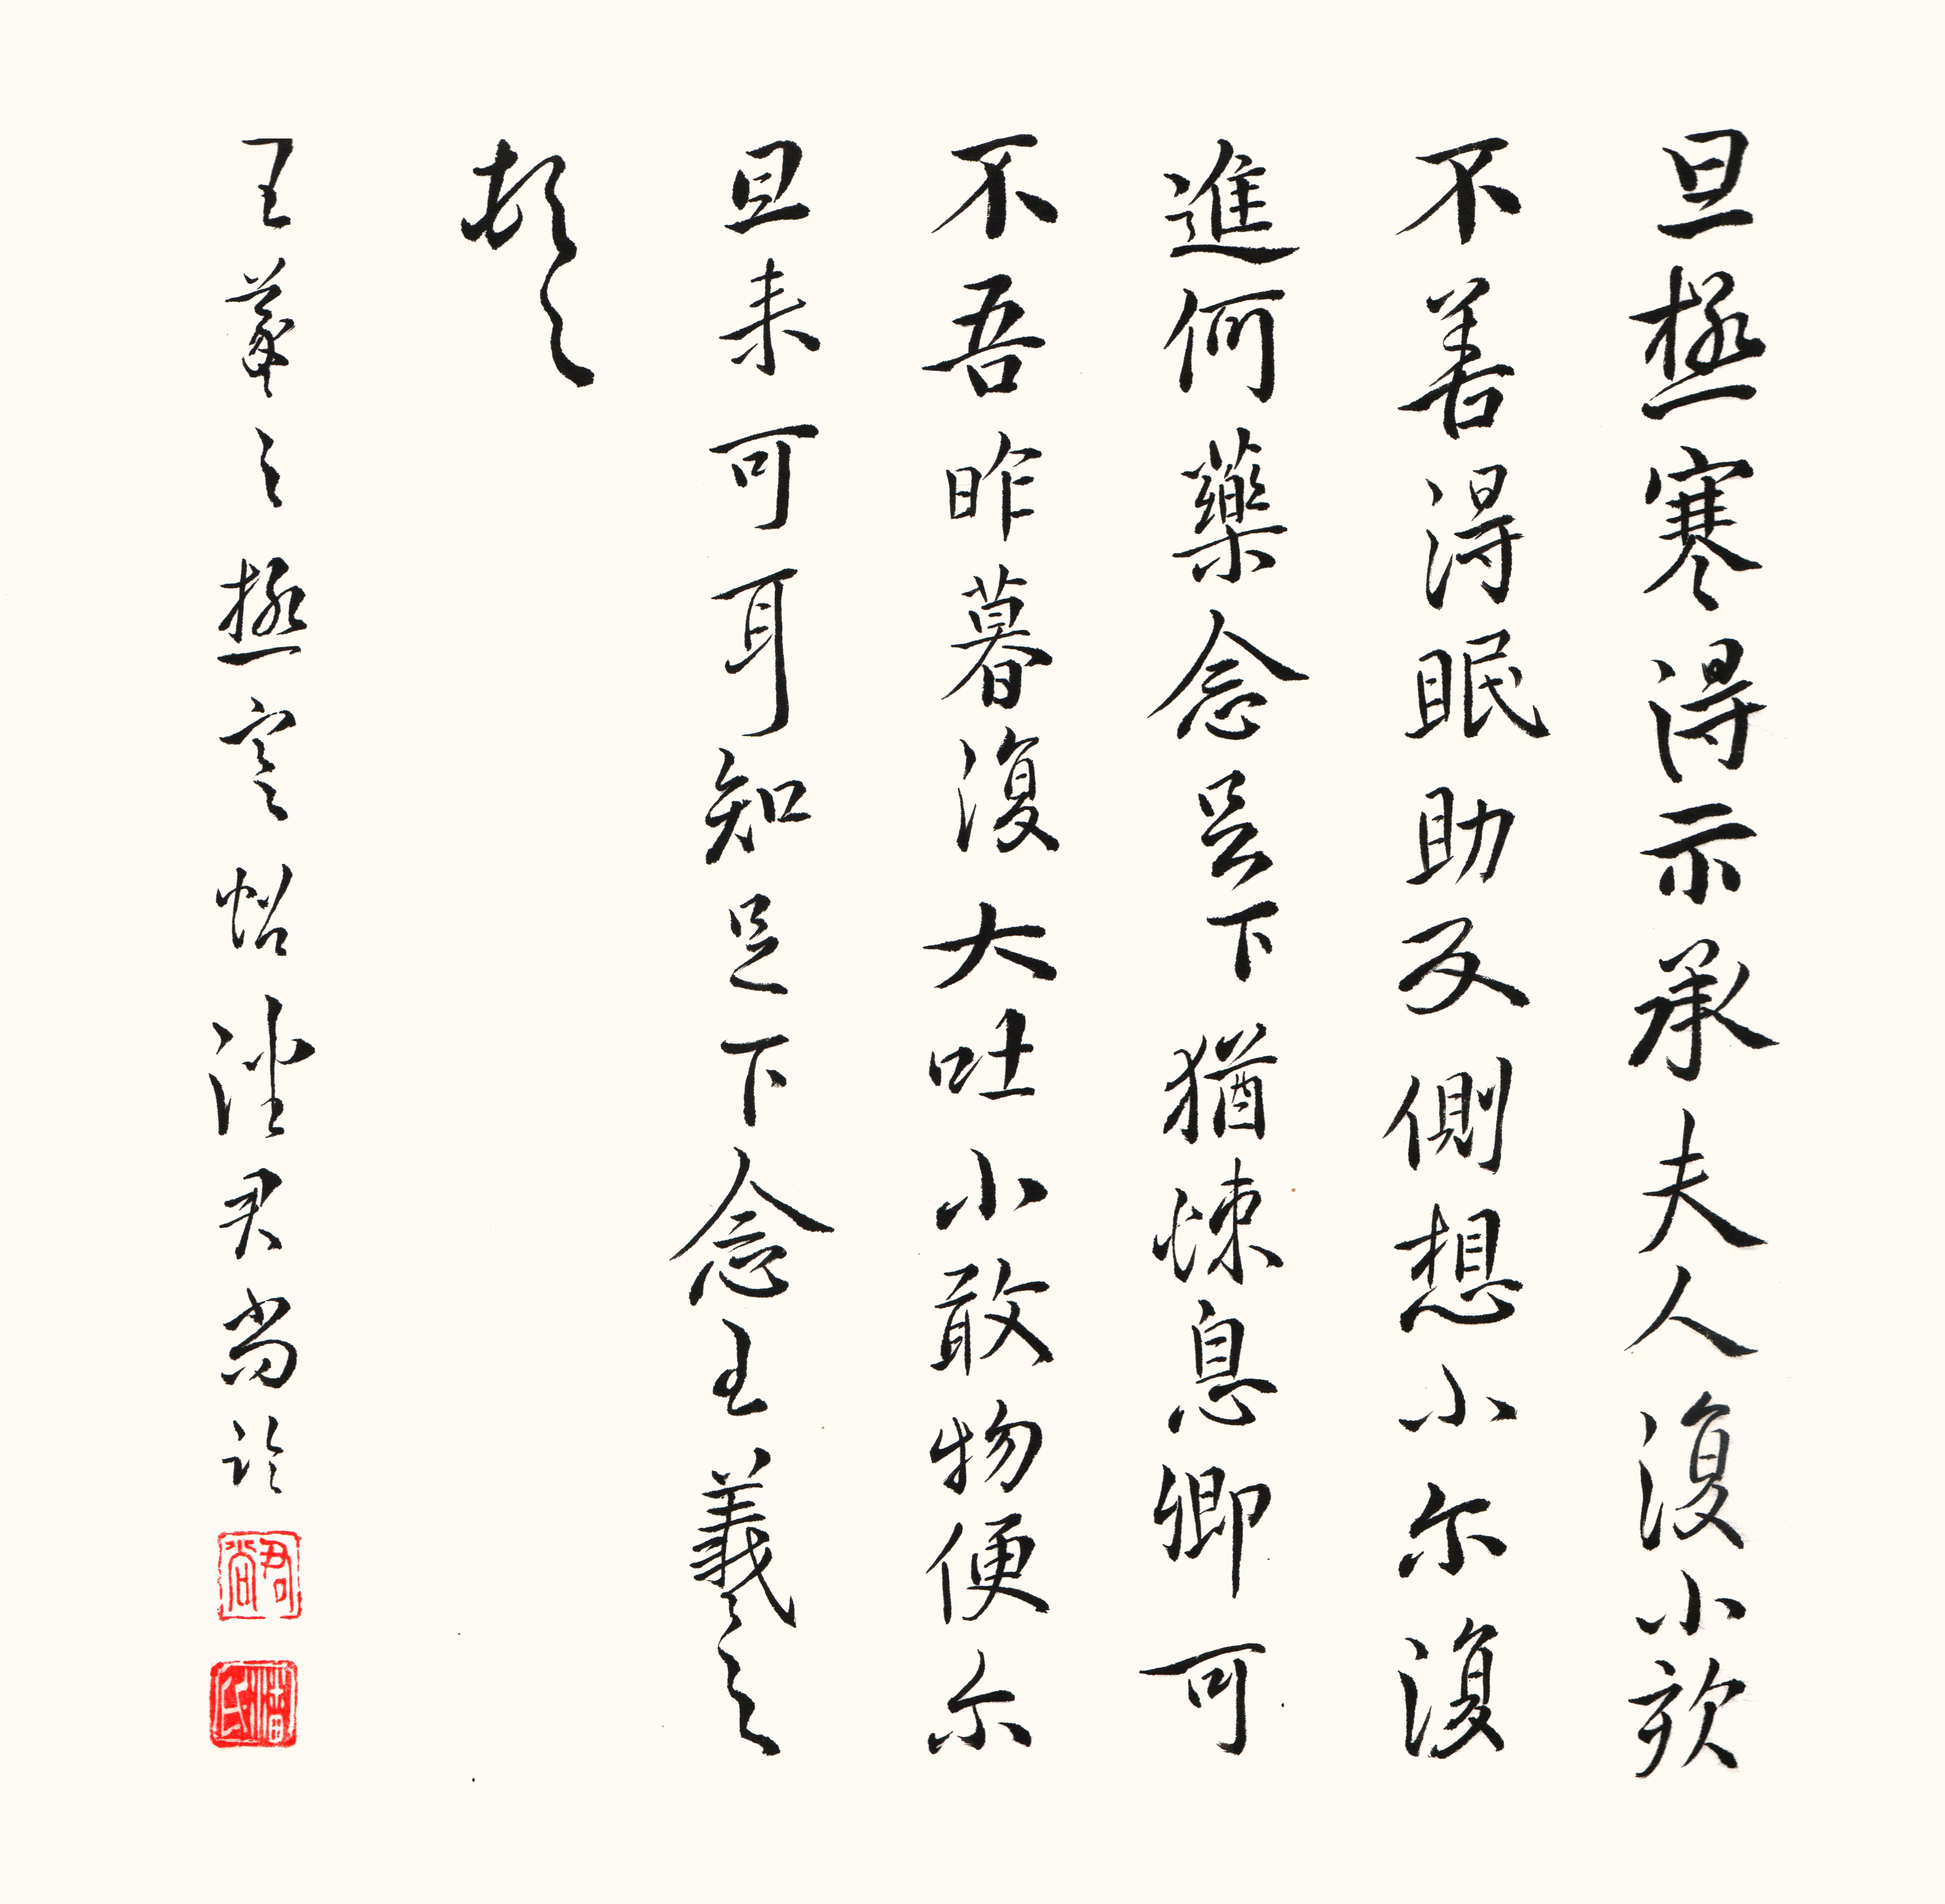 旦極寒得示承夫人復小欬
不善得眠助反側想小尔復
進何藥念足下猶悚息卿可
不吾昨暮復大吐小敢物便尔
旦来可可耳知足下念王羲之
頓之
王羲之極寒帖潘君尚臨
君尚
潘氏